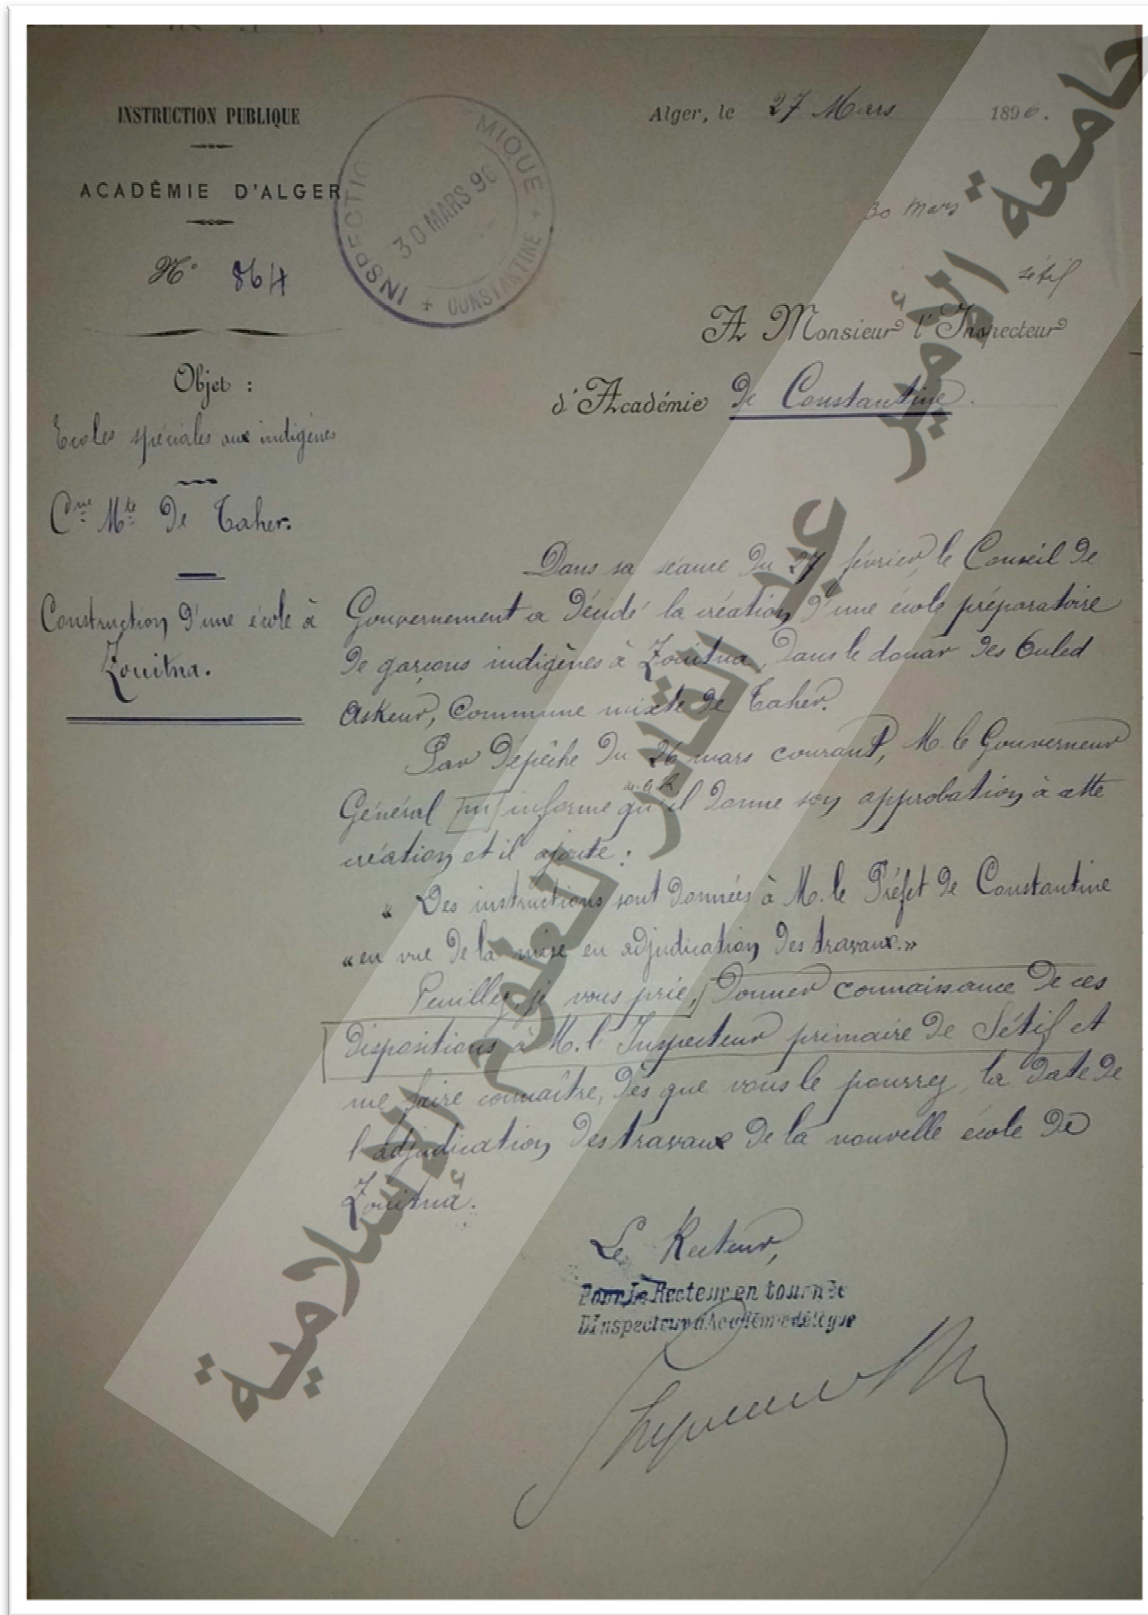 INSTRUCTION PUBLIQUE
ACADÉMIE D'ALGER
N° 864
Objet :
Ecoles spéciales aux indigènes
Cne Mte de Taher.
Construction d'une école à
Zouitna.
INSPECTIO MIQUE
30 MARS 96
+ CONSTANTINE +
Alger, le 27 Mars 1896.
30 Mars
Sétif
A Monsieur l'Inspecteur
d'Académie de Constantine.
Dans sa séance du 27 février, le Conseil de
Gouvernement a décidé la création d'une école préparatoire
de garçons indigènes à Zouitna, dans le douar des Ouled
Askeur, Commune mixte de Taher.
Par dépêche du 26 mars courant, M. le Gouverneur
Général m'informe qu'il donne son approbation à cette
création et il ajoute :
« Des instructions sont données à M. le Préfet de Constantine
« en vue de la mise en adjudication des travaux. »
Veuillez, je vous prie, donner connaissance de ces
dispositions à M. l'Inspecteur primaire de Sétif et
me faire connaître, dès que vous le pourrez, la date de
l'adjudication des travaux de la nouvelle école de
Zouitna.
Le Recteur,
Pour Le Recteur en tournée
L'Inspecteur d'Académie délégué
جامعة الأمير عبد القادر للعلوم الإسلامية